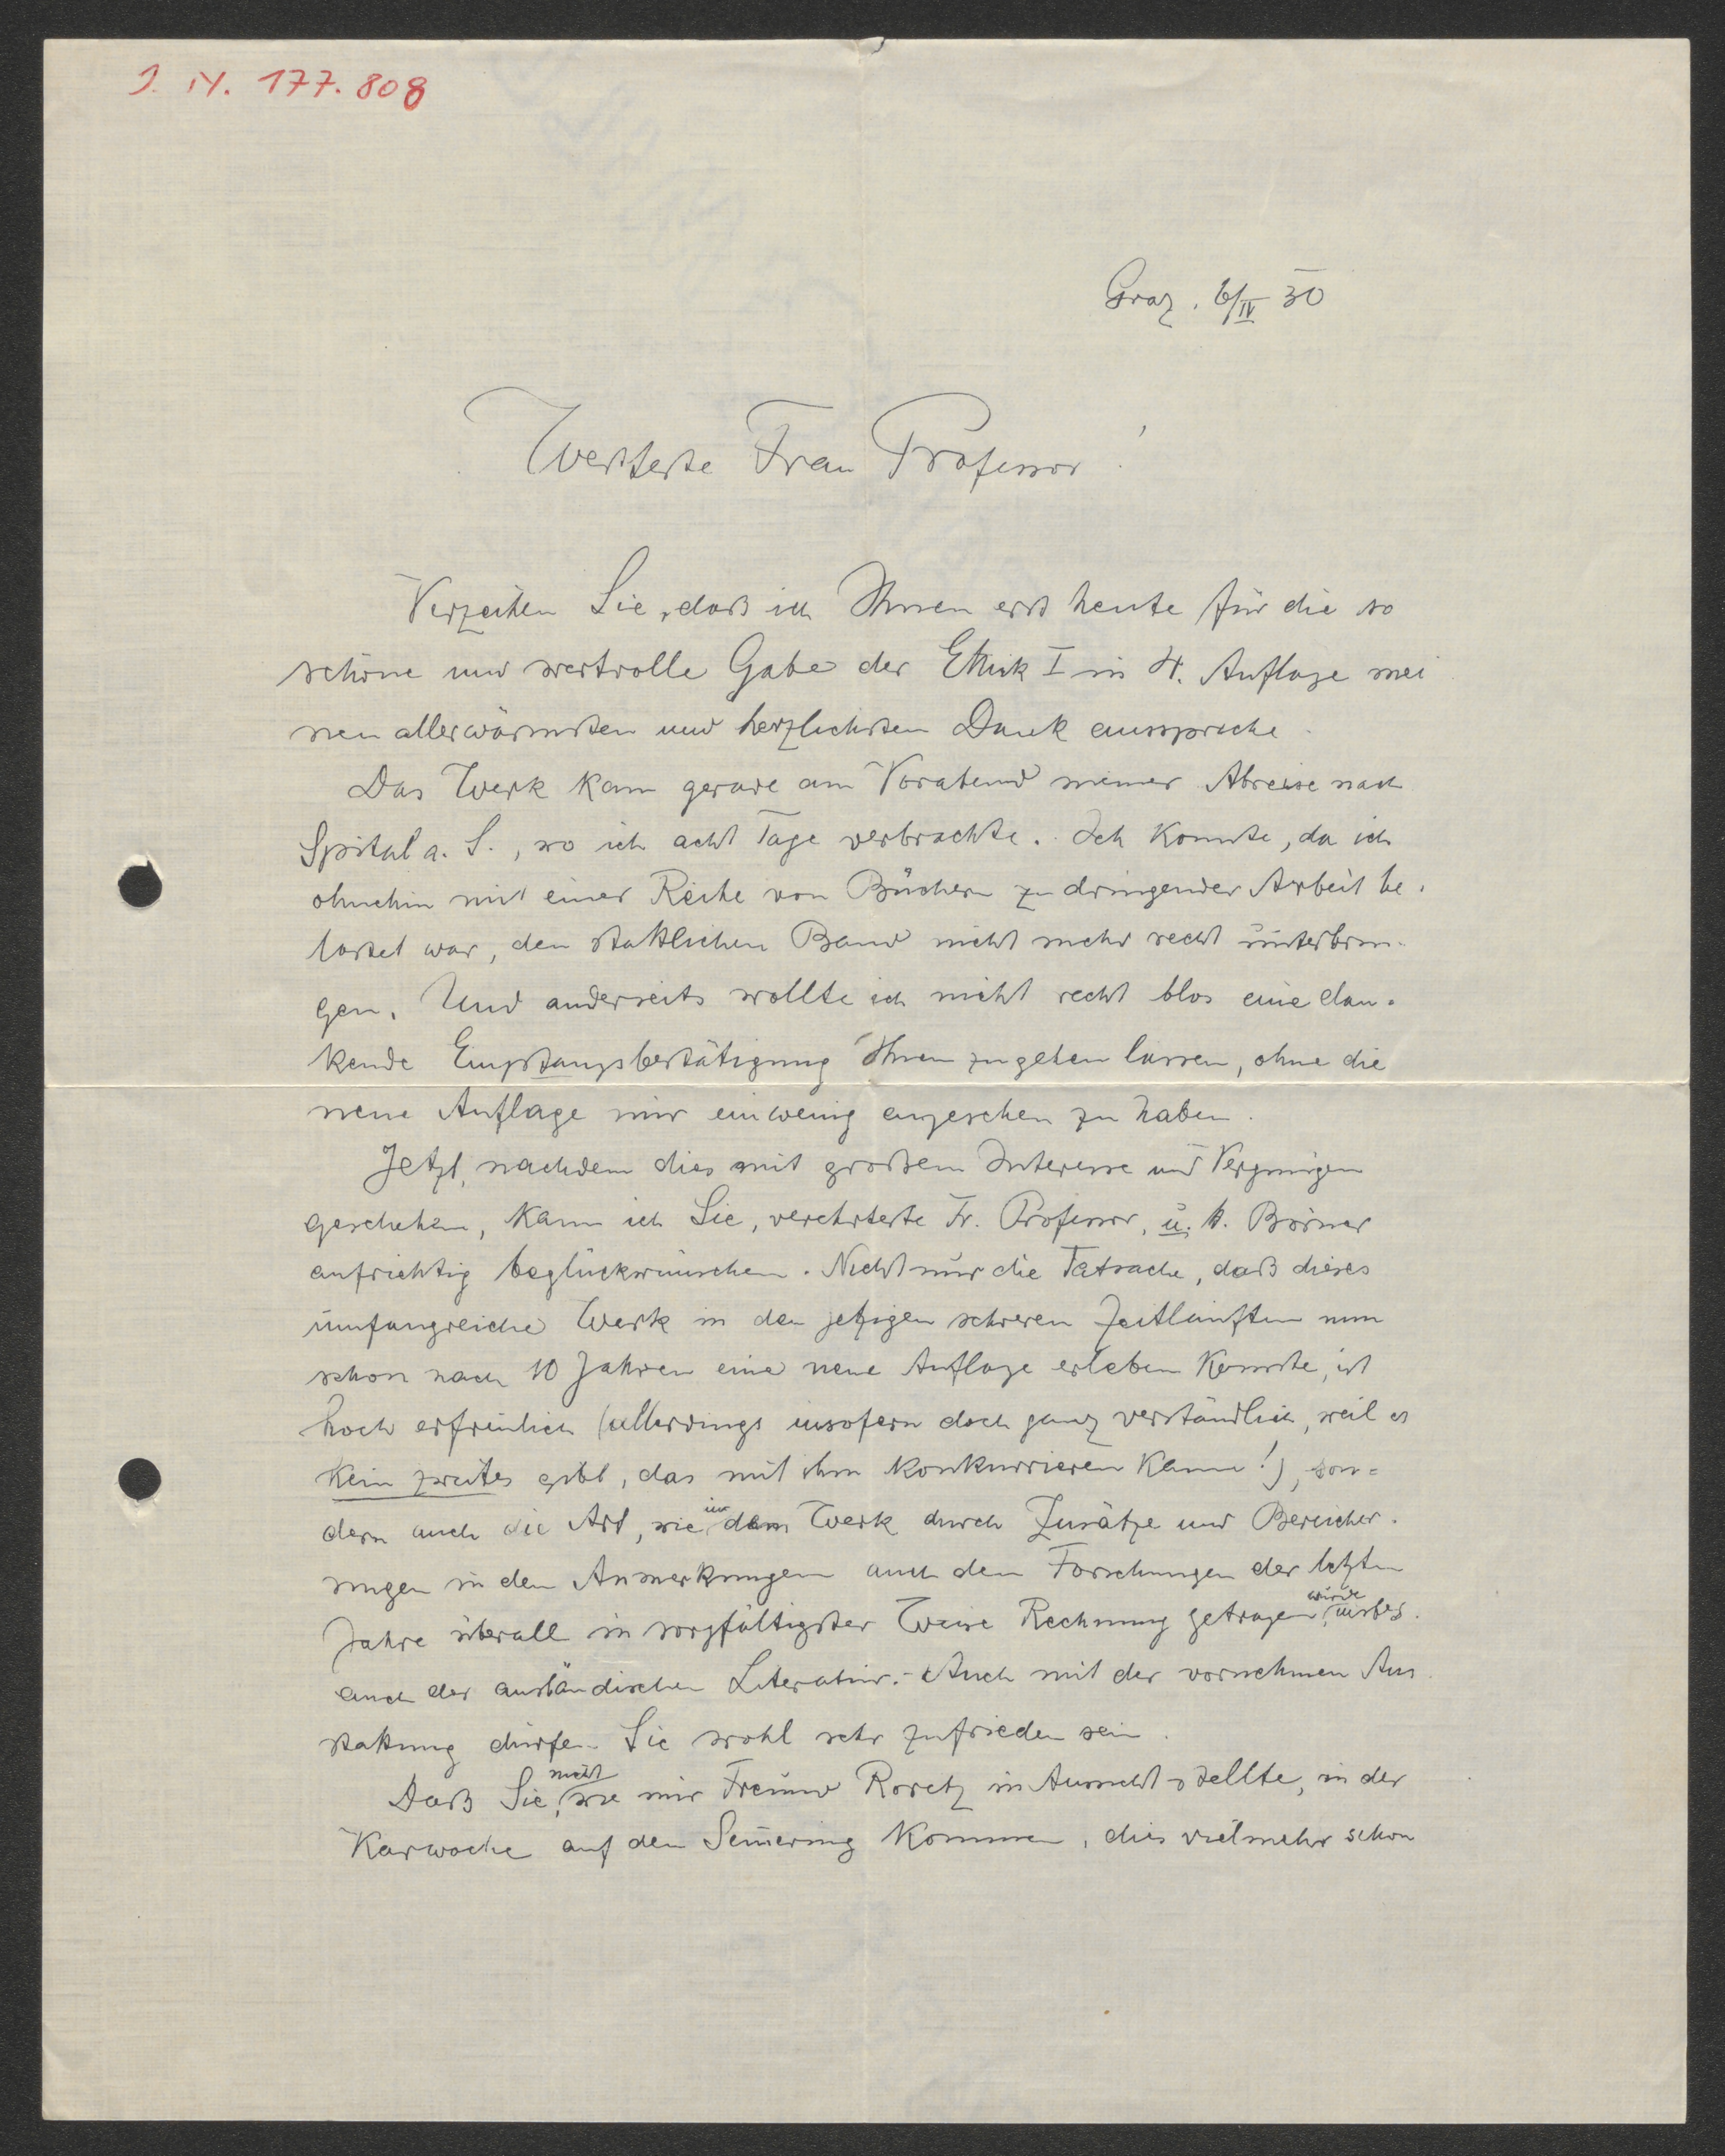 J. N. 177.808
Graz. 6/IV 30
Werteste Frau Professor!
Verzeihen Sie, daß ich Ihnen erst heute für die so
schöne und wertvolle Gabe der Ethik I in 4. Auflage mei
nen allerwärmsten und herzlichsten Dank ausspreche.
Das Werk kam gerade am Vorabend meiner Abreise nach
Spital a. S., wo ich acht Tage verbrachte. Ich konnte, da ich
ohnehin mit einer Reihe von Büchern zu dringender Arbeit be-
lastet war, den stattlichen Band nicht mehr recht unterbrin-
gen. Und anderseits wollte ich nicht recht blos eine dan-
kende Empfangsbestätigung Ihnen zugehen lassen, ohne die
neue Auflage mir ein wenig angesehen zu haben.
Jetzt, nachdem dies mit großem Interesse und Vergnügen
geschehen, kann ich Sie, verehrteste Fr. Professor, u. H. Börner
aufrichtig beglückwünschen. Nicht nur die Tatsache, daß dieses
umfangreiche Werk in den jetzigen schweren Zeitläuften nun
schon nach 10 Jahren eine neue Auflage erleben konnte, ist
hoch erfreulich (allerdings insofern doch ganz verständlich, weil es
kein zweites gibt, das mit ihm konkurrieren kann!), son-
dern auch die Art, wie im dem Werk durch Zusätze und Bereicher-
ungen in den Anmerkungen auch den Forschungen der letzten
Jahre überall in sorgfältigster Weise Rechnung getragen wurde, insbes.
auch der ausländischen Literatur. - Auch mit der vornehmen Aus
stattung dürfen Sie wohl sehr zufrieden sein.
Daß Sie nicht, wie mir Freund Roretz in Aussicht stellte, in der
Karwoche auf den Semering kommen, dies vielmehr schon